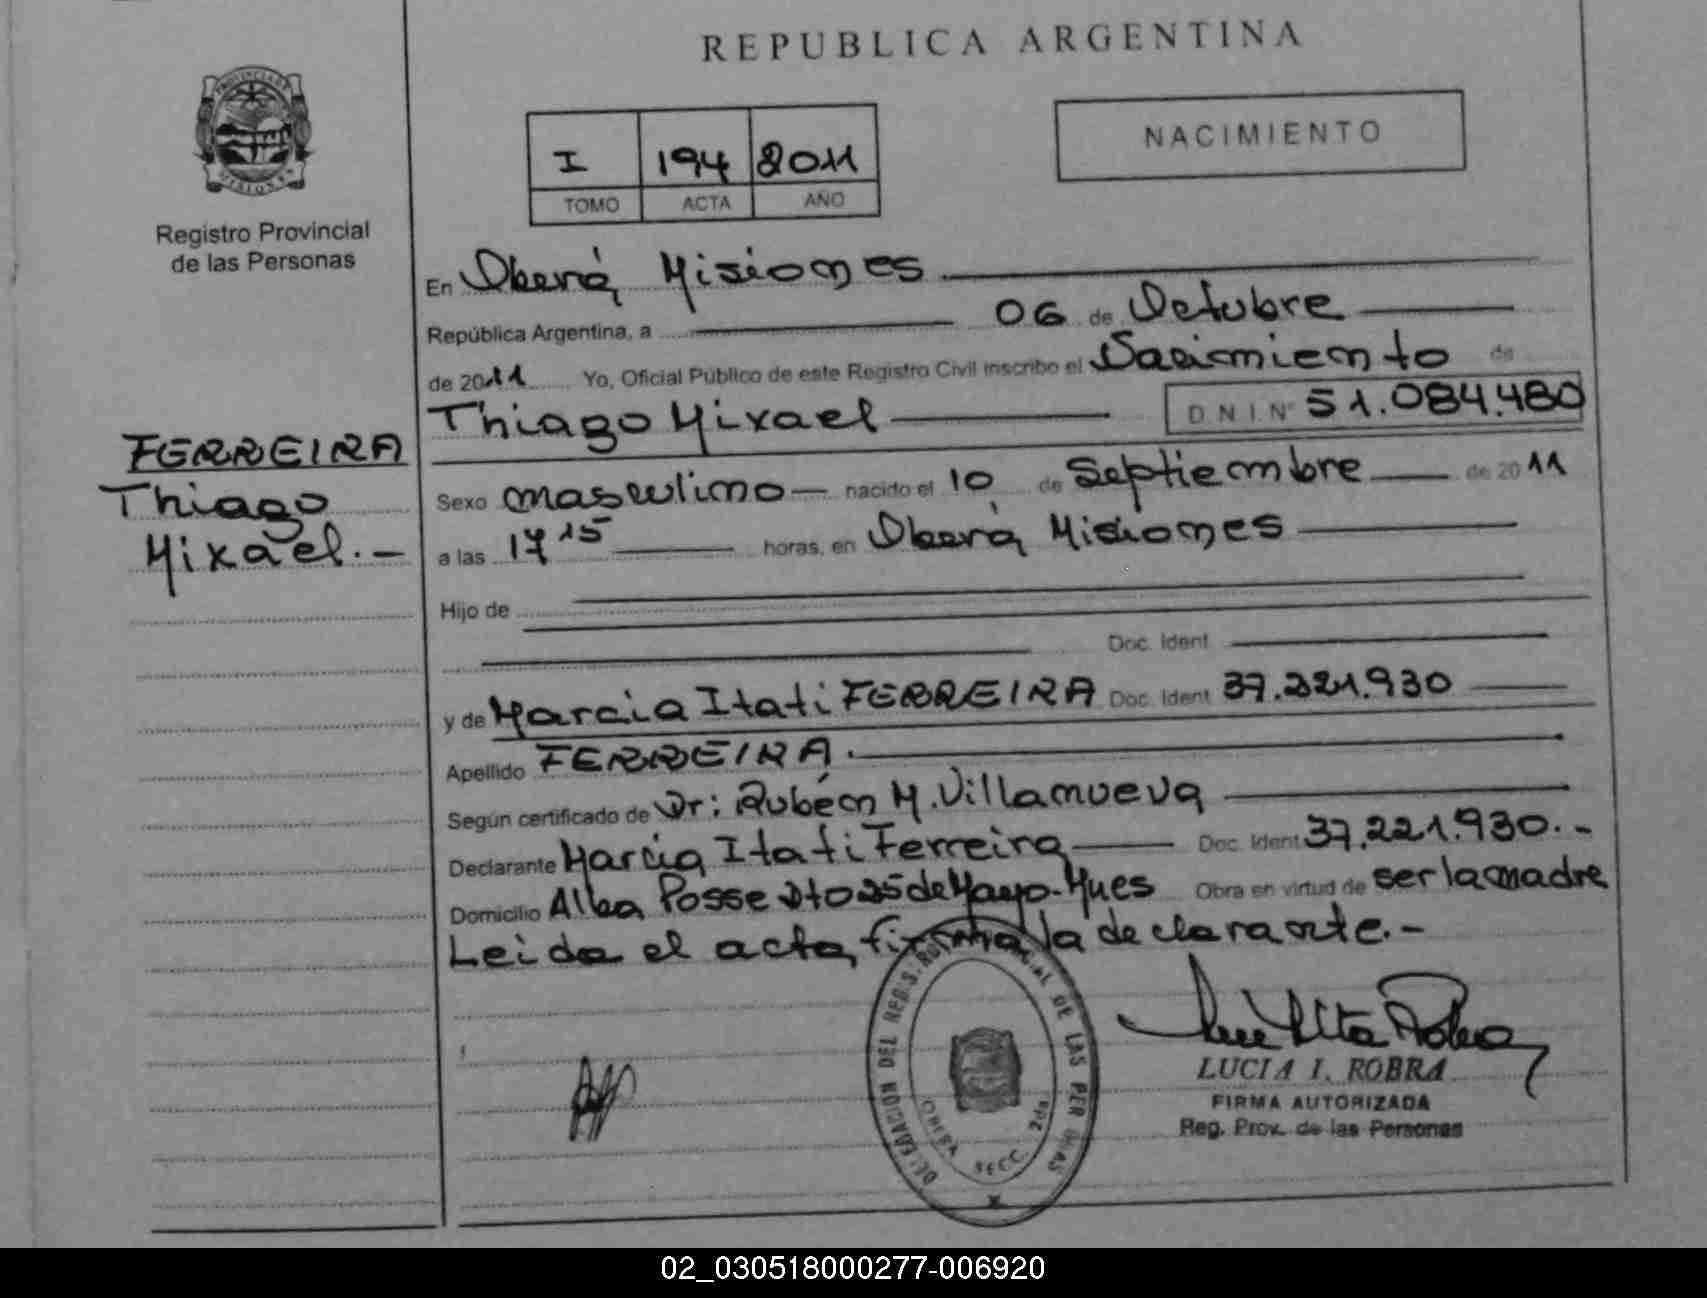 REPUBLICA ARGENTINA
PROVINCIA DE MISIONES
Registro Provincial
de las Personas
I 194 2011
TOMO ACTA AÑO
NACIMIENTO
En Oberá Misiones
República Argentina, a 06 de Octubre
de 2011 Yo, Oficial Público de este Registro Civil inscribo el Nacimiento de
Thiago Mixael D N I N° 51.084.480
FERREIRA
Thiago
Mixael.-
Sexo masculino nacido el 10 de Septiembre de 2011
a las 17 15 horas, en Oberá Misiones
Hijo de
Doc. Ident
y de Marcia Itati FERREIRA Doc. Ident 37.221.930
Apellido FERREIRA.
Según certificado de Dr: Rubén M. Villanueva
Declarante Marcia Itati Ferreira Doc. Ident 37.221.930.-
Domicilio Alba Posse Dto 25 de Mayo-Mnes Obra en virtud de ser la madre
Leida el acta, firma la declarante.-
DELEGACION DEL REG. DE LAS PERSONAS
SECC. 2da.
LUCIA I. ROBRA
FIRMA AUTORIZADA
Reg. Prov. de las Personas
02_030518000277-006920